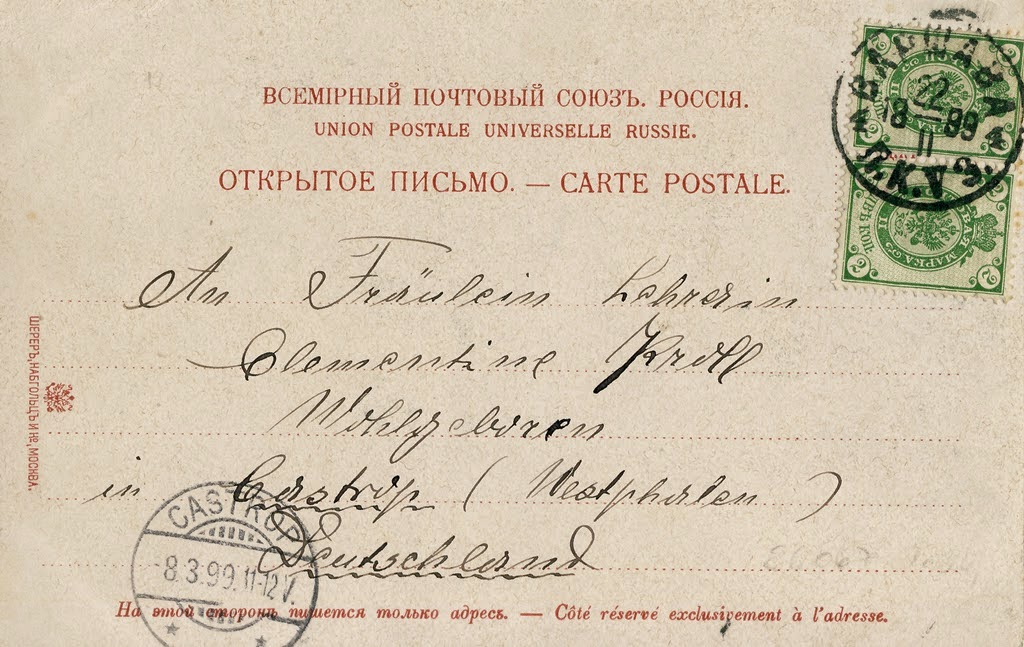 ВСЕМІРНЫЙ ПОЧТОВЫЙ СОЮЗЪ. РОССІЯ.
UNION POSTALE UNIVERSELLE RUSSIE.
ОТКРЫТОЕ ПИСЬМО. — CARTE POSTALE.
ВАРШАВА
22
18—99
II
4 4
П.К.V Э.
2 2
МАРКА
An Fräulein Lehrerin
Clementine Kroll
Wohlgeboren
in Castrop (Westphalen)
Deutschland
ШЕРЕРЪ, НАБГОЛЬЦЪ И Ко, МОСКВА.
CASTROP
8.3.99.11-12V.
На этой сторонѣ пишется только адресъ. — Côté réservé exclusivement à l'adresse.